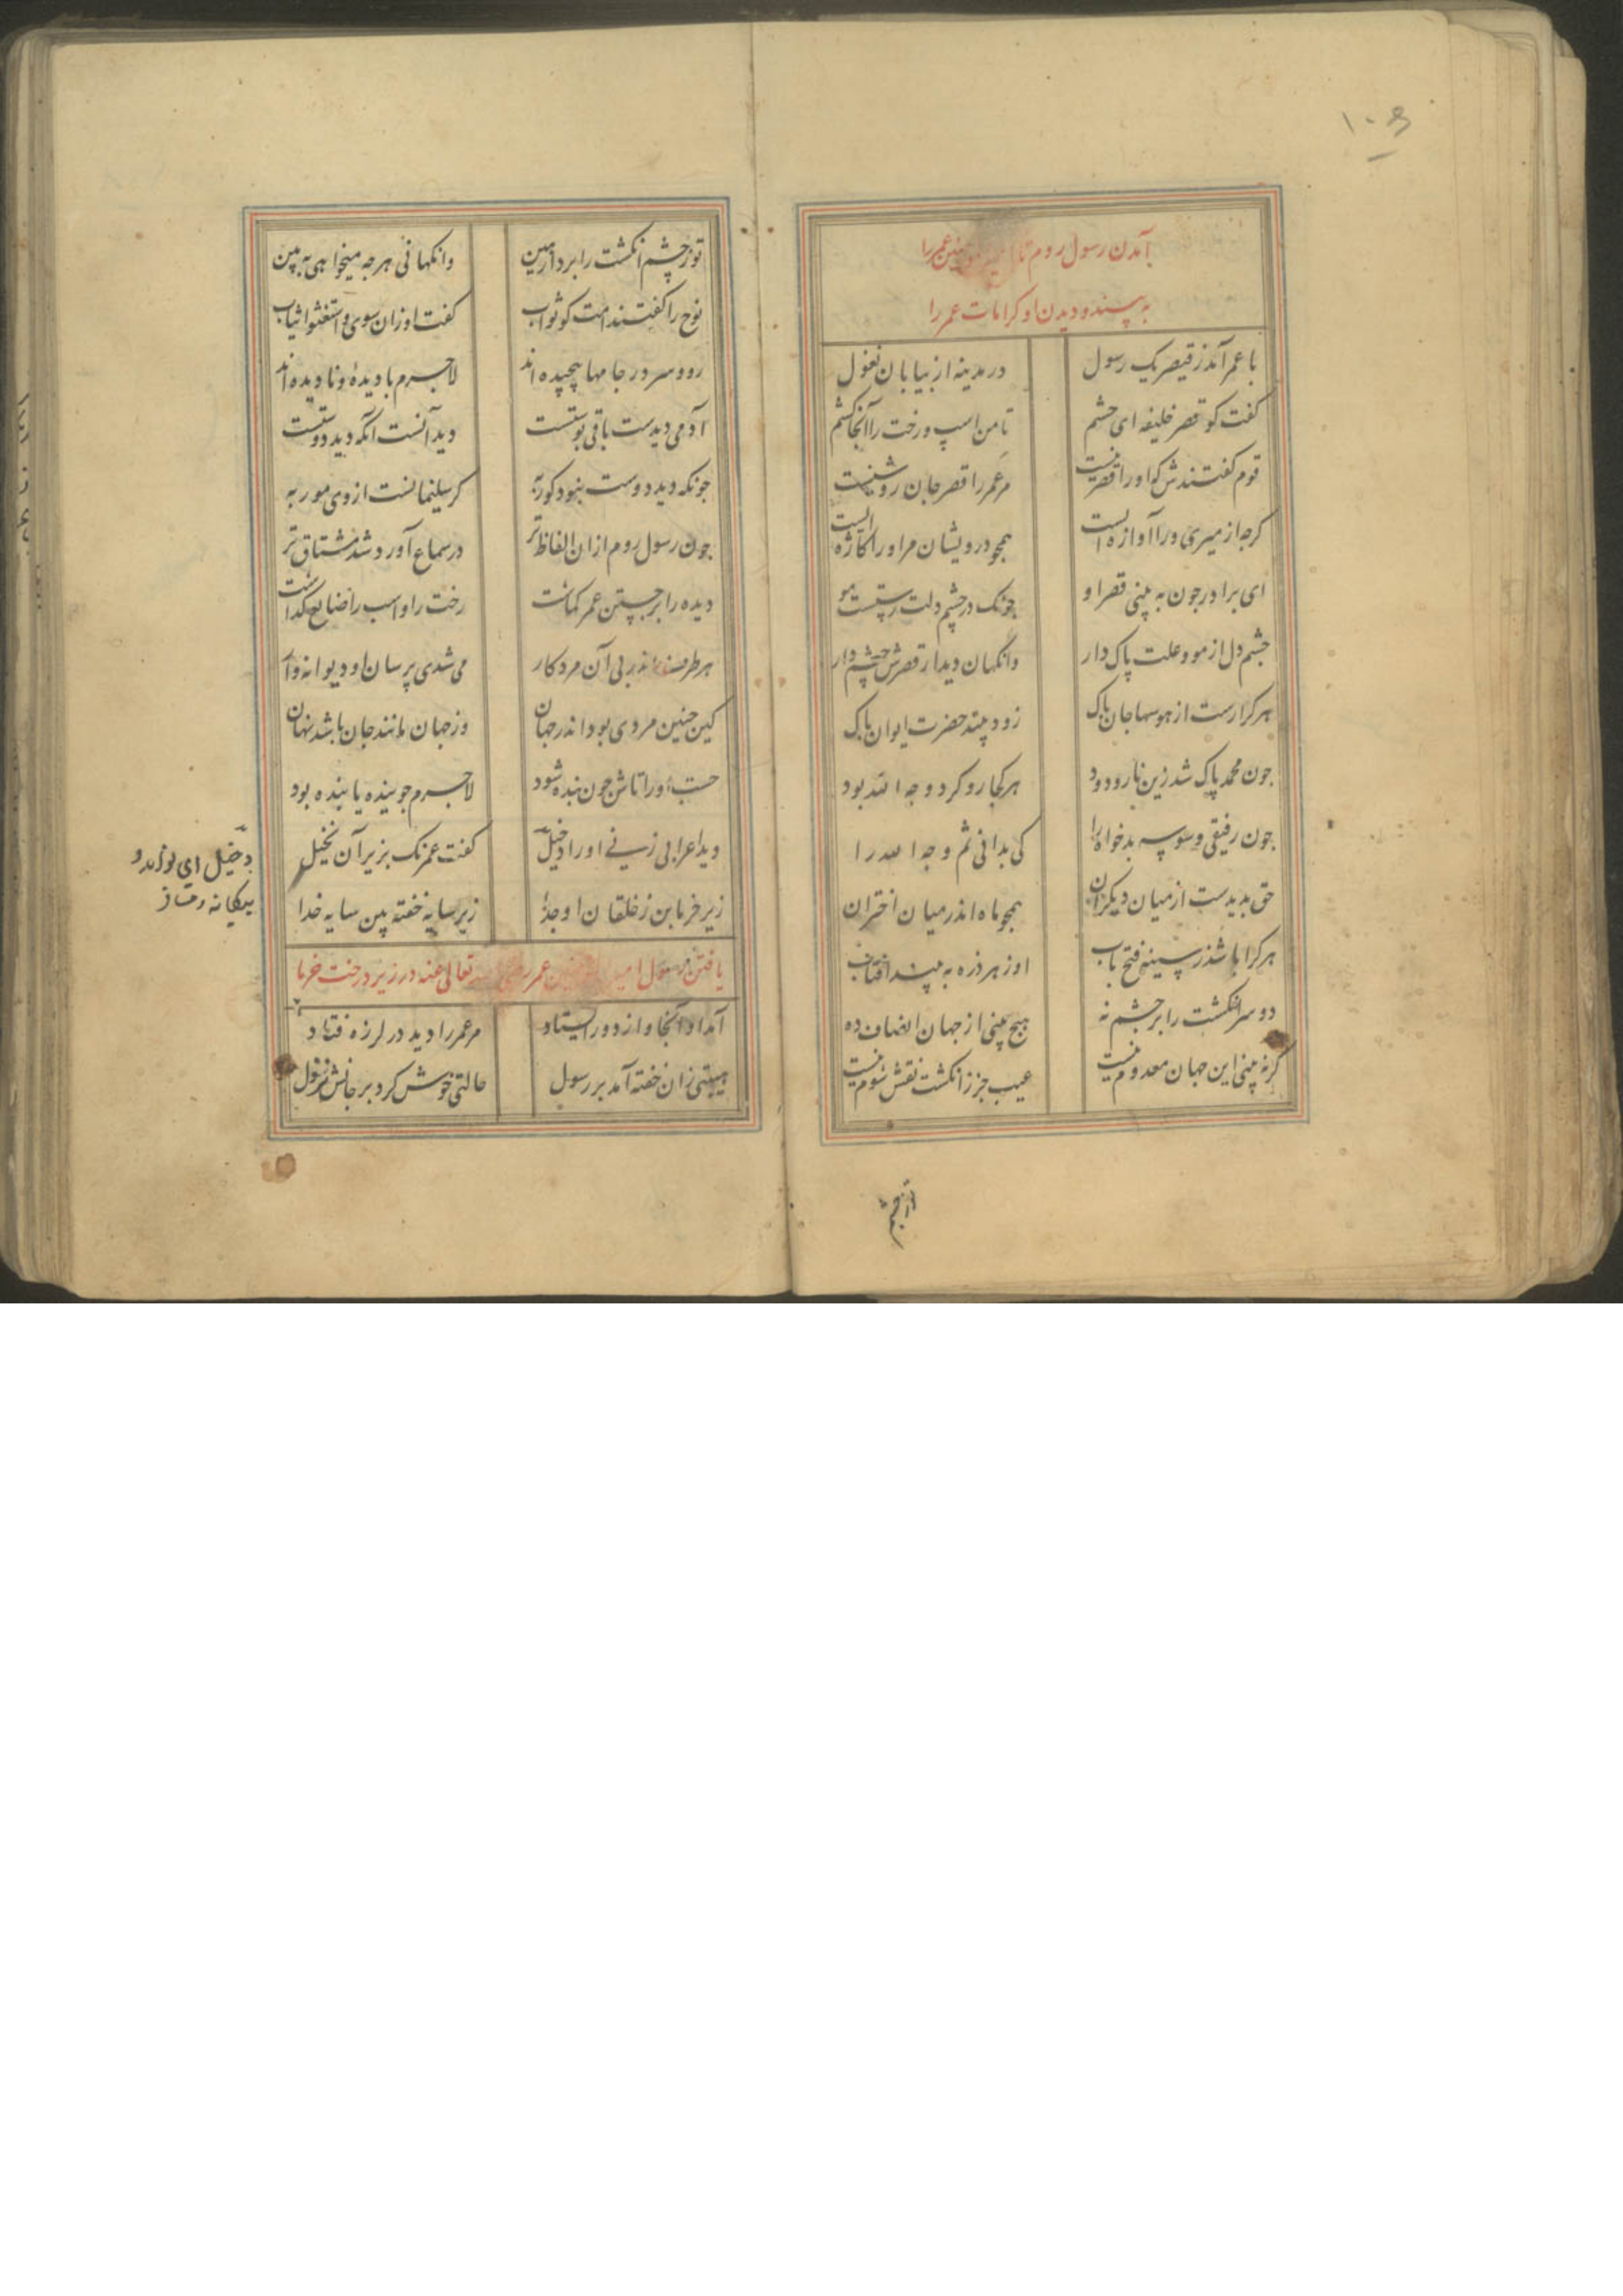 ۱۰۶
آمدن رسول روم تا امیر المومنین عمر را
به بیند و دیدن او کرامات عمر را
با عمر آمد ز قیصر یک رسول در مدینه از بیابان نغول
کفت کو قصر خلیفه ای حشم تا من اسپ و رخت را آنجا کشم
قوم کفتندش که او را قصر نیست مر عمر را قصر جان روشنیست
کرجه از میری ورا آوازه ایست همجو درویشان مر او را کازه ایست
ای برادر جون به بینی قصر او جونک در جشم دلت رستست مو
جشم دل از مو و علت پاک دار وانکهان دیدار قصرش جشم دار
هر کرا رست از هوسها جان پاک زود بیند حضرت ایوان پاک
جون محمد پاک شد زین نار و دود هر کجا رو کرد وجه الله بود
جون رفیقی وسوسه بدخواه را کی بدانی ثم وجه الله را
حق بدیدست از میان دیکران همجو ماه اندر میان اختران
هر کرا باشد ز سینه فتح باب او ز هر ذره به بیند افتاب
دو سر انکشت را بر جشم نه هیج بینی از جهان انصاف ده
کر نه بینی این جهان معدوم نیست عیب جز ز انکشت نقش شوم نیست
تو ز جشم
تو ز جشم انکشت را بردار هین وانکهانی هرجه میخواهی به بین
نوح را کفتند امت کو ثواب کفت او زان سوی و استغشوا ثیاب
رو و سر در جامها پیچیده اند لاجرم با دیده و نادیده اند
آدمی دیدست باقی پوستست دید آنست آنکه دید دوستست
جونکه دید دوست نبود کور به کر سلیمانست از وی مور به
جون رسول روم از ان الفاظ تر در سماع آورد شد مشتاق تر
دیده را بر جستن عمر کماشت رخت را و اسب را ضایع کذاشت
هر طرف اندر پی آن مرد کار می شدی پرسان او دیوانه وار
کین جنین مردی بود اندر جهان وز جهان مانند جان باشد نهان
جست او را تاش جون بنده شود لاجرم جوینده یابنده بود
دید اعرابی زنی او را دخیل کفت عمر نک بزیر آن نخیل
زیر خرما بن ز خلقان او جدا زیر سایه خفته بین سایه خدا
دخیل ای نوآمد و
بیکانه و مسافر
یافتن رسول امیر المومنین عمر رضی الله تعالی عنه در زیر درخت خرما
آمد او آنجا و از دور ایستاد مر عمر را دید در لرزه فتاد
هیبتی زان خفته آمد بر رسول حالتی خوش کرد بر جانش نزول